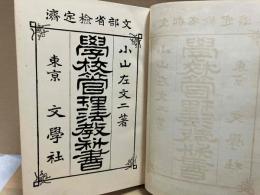 文部省檢定濟
小山左文二著
學校管理法教科書
東京 文學社